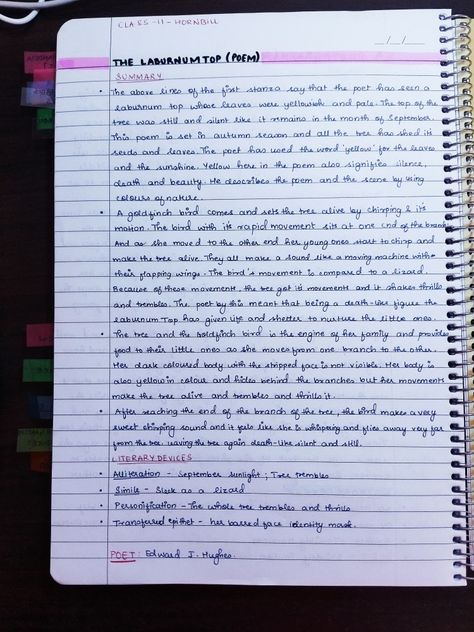 CLASS-11-HORNBILL
THE LABURNUM TOP (POEM)
SUMMARY
• The above lines of the first stanza say that the poet has seen a
laburnum top whose leaves were yellowish and pale. The top of the
tree was still and silent like it remains in the month of September.
This poem is set in autumn season and all the tree has shed its
seeds and leaves. The poet has used the word 'yellow' for the leaves
and the sunshine. Yellow here in the poem also signifies silence,
death and beauty. He describes the poem and the scene by using
colours of nature.
• A goldfinch bird comes and sets the tree alive by chirping & its
motion. The bird with its rapid movement sits at one end of the branch
And as she moved to the other end her young ones start to chirp and
make the tree alive. They all make a sound like a moving machine with
their flapping wings. The bird's movement is compared to a lizard.
Because of these movements, the tree got its movements and it shakes thrills
and trembles. The poet by this meant that being a death-like figure the
laburnum Top has given life and shelter to nurture the little ones.
• The tree and the goldfinch bird is the engine of her family and provides
food to their little ones as she moves from one branch to the other.
Her dark coloured body with the stripped face is not visible. Her body is
also yellow in colour and hides behind the branches but her movements
make the tree alive and trembles and thrills it.
• After reaching the end of the branch of the tree, the bird makes a very
sweet chirping sound and it feels like she is whispering and flies away very far
from the tree. leaving the tree again death-like silent and still.
LITERARY DEVICES
• Alliteration - September sunlight ; Tree trembles
• Simile - Sleek as a lizard
• Personification - The whole tree trembles and thrills
• Transferred epithet - her barred face identity mask.
POET : Edward J. Hughes.